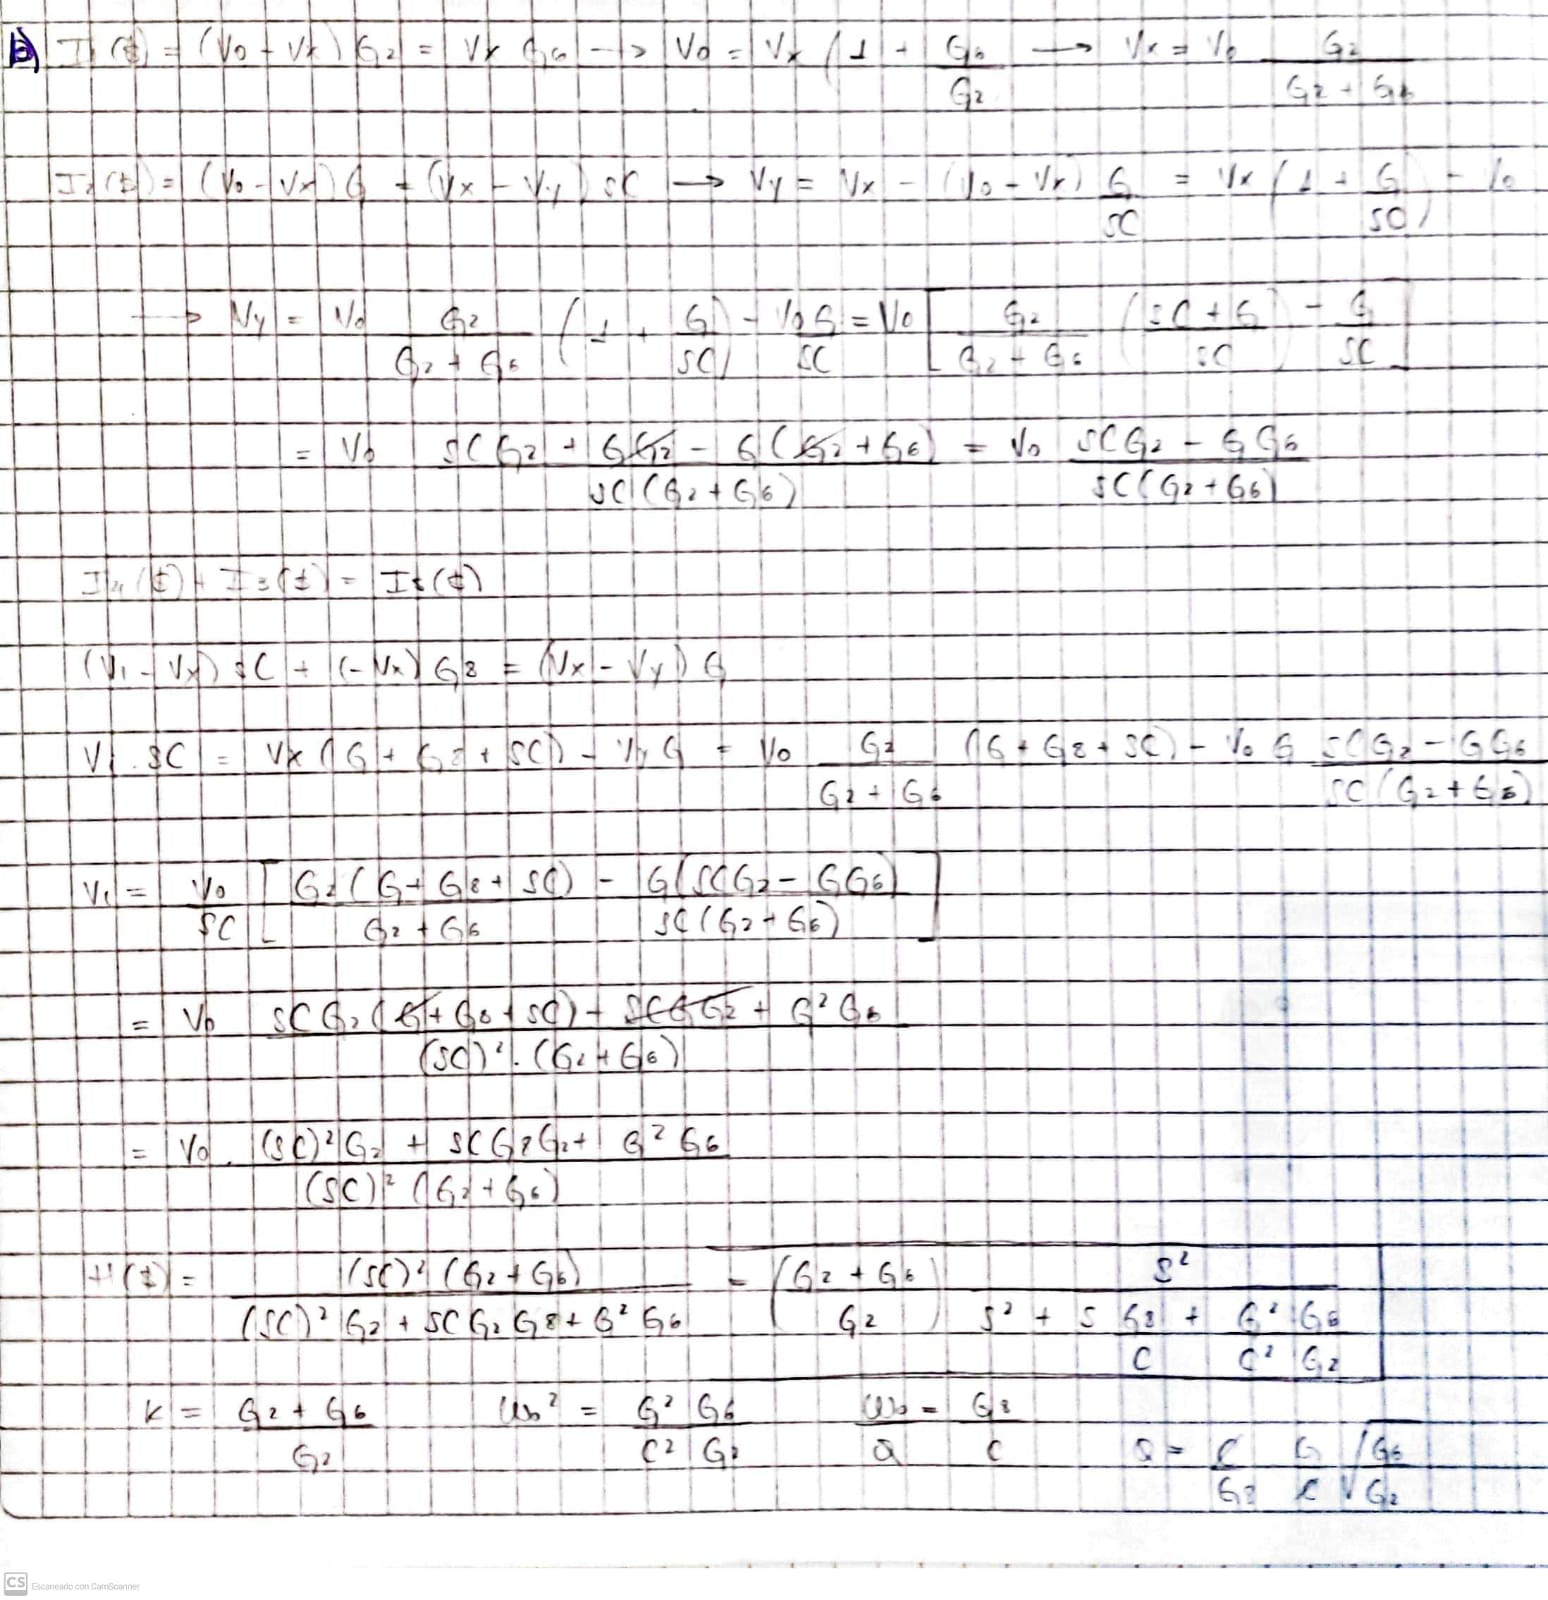 b) I1($) = (Vo - Vx) G2 = Vx G6 → Vo = Vx (1 + G6/G2 → Vx = Vo G2/(G2 + G6)
I2($) = (Vo - Vx) G = (Vx - Vy) SC → Vy = Vx - (Vo - Vx) G/SC = Vx (1 + G/SC) - Vo
→ Vy = Vo G2/(G2 + G6) (1 + G/SC) - Vo G/SC = Vo [G2/(G2 + G6) (SC + G/SC) - G/SC]
= Vo (SCG2 + GG2 - G(G2 + G6))/(SC(G2 + G6)) = Vo (SCG2 - GG6)/(SC(G2 + G6))
I4($) + I3($) = I5($)
(V1 - Vx) SC + (-Vx) G8 = (Vx - Vy) G
V1 . SC = Vx (G + G8 + SC) - Vy G = Vo G2/(G2 + G6) (G + G8 + SC) - Vo G (SCG2 - GG6)/(SC(G2 + G6))
V1 = Vo/SC [G2(G + G8 + SC)/(G2 + G6) - G(SCG2 - GG6)/(SC(G2 + G6))]
= Vo (SCG2(G + G8 + SC) + SCGG2 + G²G6)/((SC)² . (G2 + G6))
= Vo . ((SC)²G2 + SCG8G2 + G²G6)/((SC)² (G2 + G6))
H($) = (SC)² (G2 + G6)/((SC)² G2 + SC G2 G8 + G² G6) = (G2 + G6/G2) S²/(S² + S G8/C + G² G6/C² G2)
K = G2 + G6/G2 ωo² = G² G6/C² G2 ωo/Q = G8/C Q = C/G8 G/C √G6/G2
CS Escaneado con CamScanner